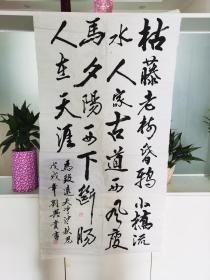 枯藤老树昏鴉小橋流
水人家古道西風瘦
馬夕陽西下斷腸
人在天涯
馬致遠天净沙秋思
戊戌年劉書